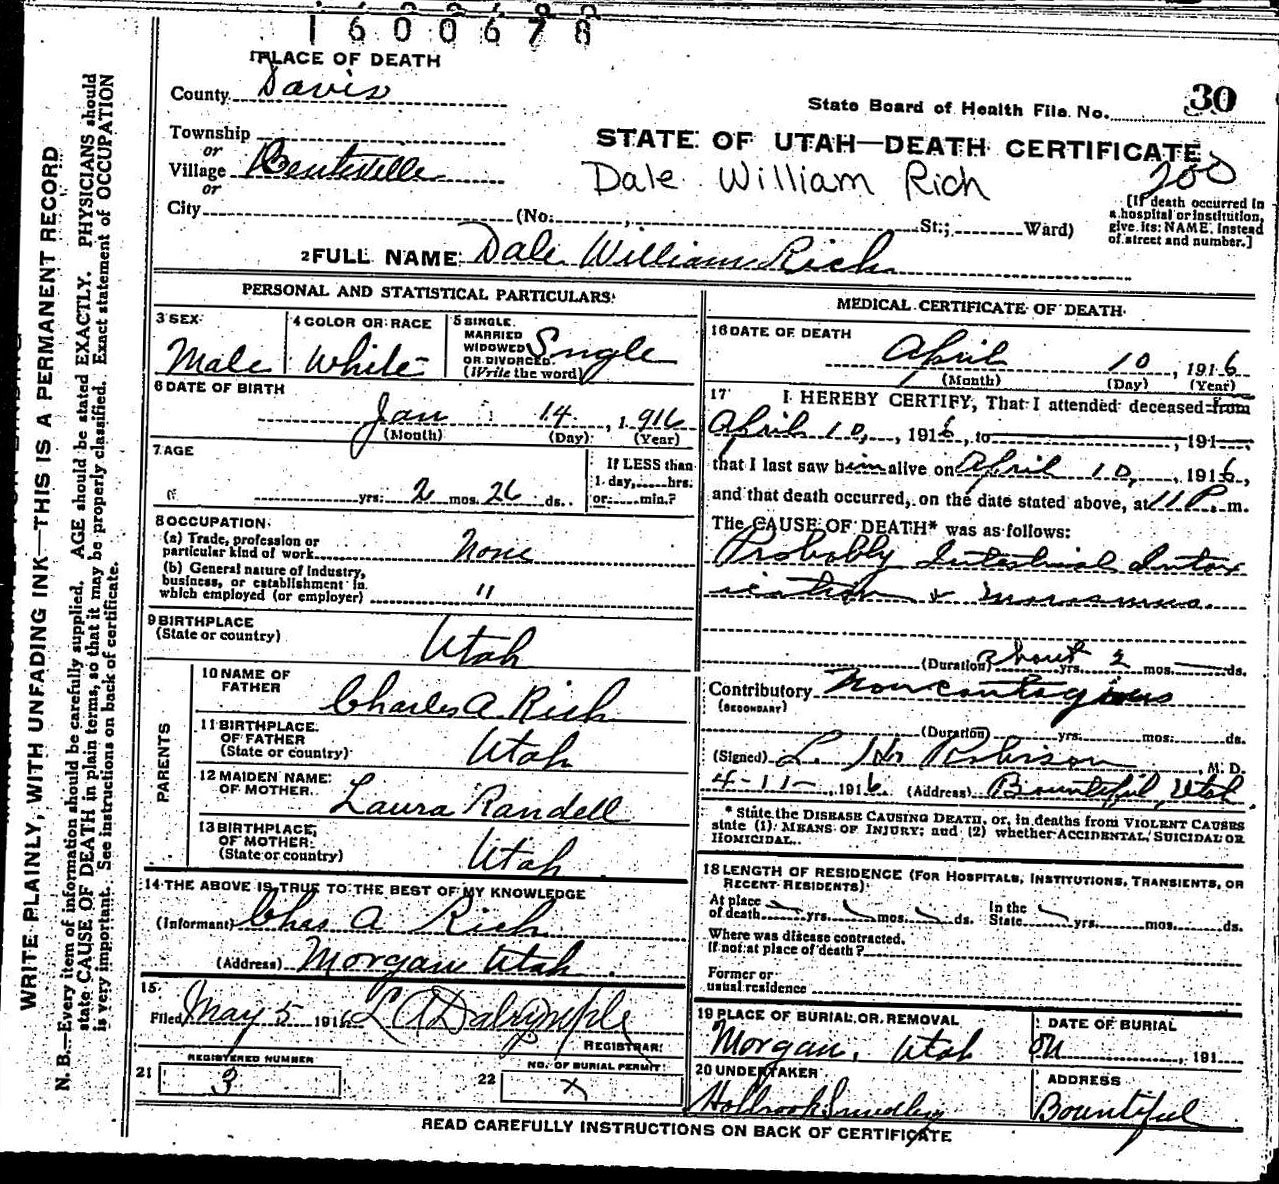 1600678
1 PLACE OF DEATH
County Davis
State Board of Health File No. 30
Township
or
STATE OF UTAH—DEATH CERTIFICATE
Village Centerville
Dale William Rich
200
or
City (No. , St.; Ward)
[If death occurred in
a hospital or institution,
give its NAME instead
of street and number.]
2 FULL NAME Dale William Rich
PERSONAL AND STATISTICAL PARTICULARS
3 SEX
Male
4 COLOR OR RACE
White
5 SINGLE
MARRIED
WIDOWED
OR DIVORCED
(Write the word)
Single
6 DATE OF BIRTH
Jan 14, 1916
(Month) (Day) (Year)
7 AGE
yrs. 2 mos. 26 ds.
If LESS than
1 day, hrs.
or min.?
8 OCCUPATION
(a) Trade, profession or
particular kind of work None
(b) General nature of industry,
business, or establishment in
which employed (or employer) "
9 BIRTHPLACE
(State or country) Utah
PARENTS
10 NAME OF
FATHER Charles A. Rich
11 BIRTHPLACE
OF FATHER
(State or country) Utah
12 MAIDEN NAME
OF MOTHER Laura Randell
13 BIRTHPLACE
OF MOTHER
(State or country) Utah
14 THE ABOVE IS TRUE TO THE BEST OF MY KNOWLEDGE
(Informant) Chas A Rich
(Address) Morgan Utah.
15
Filed May 5 1916 L A Dalrymple
REGISTRAR
21 REGISTERED NUMBER
3
22 NO. OF BURIAL PERMIT
X
MEDICAL CERTIFICATE OF DEATH
16 DATE OF DEATH
April 10, 1916
(Month) (Day) (Year)
17 I HEREBY CERTIFY, That I attended deceased from
April 10, 1916, to , 191
that I last saw him alive on April 10, 1916,
and that death occurred, on the date stated above, at 11 P. m.
The CAUSE OF DEATH* was as follows:
Probably Intestinal Intox
ication & marasmus.
(Duration) about yrs. 2 mos. ds.
Contributory Non contagious
(SECONDARY)
(Duration) yrs. mos. ds.
(Signed) L. H. Robinson, M. D.
4-11-, 1916 (Address) Bountiful, Utah.
* State the DISEASE CAUSING DEATH, or, in deaths from VIOLENT CAUSES
state (1) MEANS OF INJURY; and (2) whether ACCIDENTAL, SUICIDAL OR
HOMICIDAL.
18 LENGTH OF RESIDENCE (FOR HOSPITALS, INSTITUTIONS, TRANSIENTS, OR
RECENT RESIDENTS)
At place
of death yrs. mos. ds.
In the
State yrs. mos. ds.
Where was disease contracted,
if not at place of death?
Former or
usual residence
19 PLACE OF BURIAL OR REMOVAL
Morgan, Utah
DATE OF BURIAL
, 191
20 UNDERTAKER
Holbrook Smedley
ADDRESS
Bountiful
READ CAREFULLY INSTRUCTIONS ON BACK OF CERTIFICATE
WRITE PLAINLY, WITH UNFADING INK—THIS IS A PERMANENT RECORD
N. B.—Every item of information should be carefully supplied. AGE should be stated EXACTLY. PHYSICIANS should
state CAUSE OF DEATH in plain terms, so that it may be properly classified. Exact statement of OCCUPATION
is very important. See instructions on back of certificate.